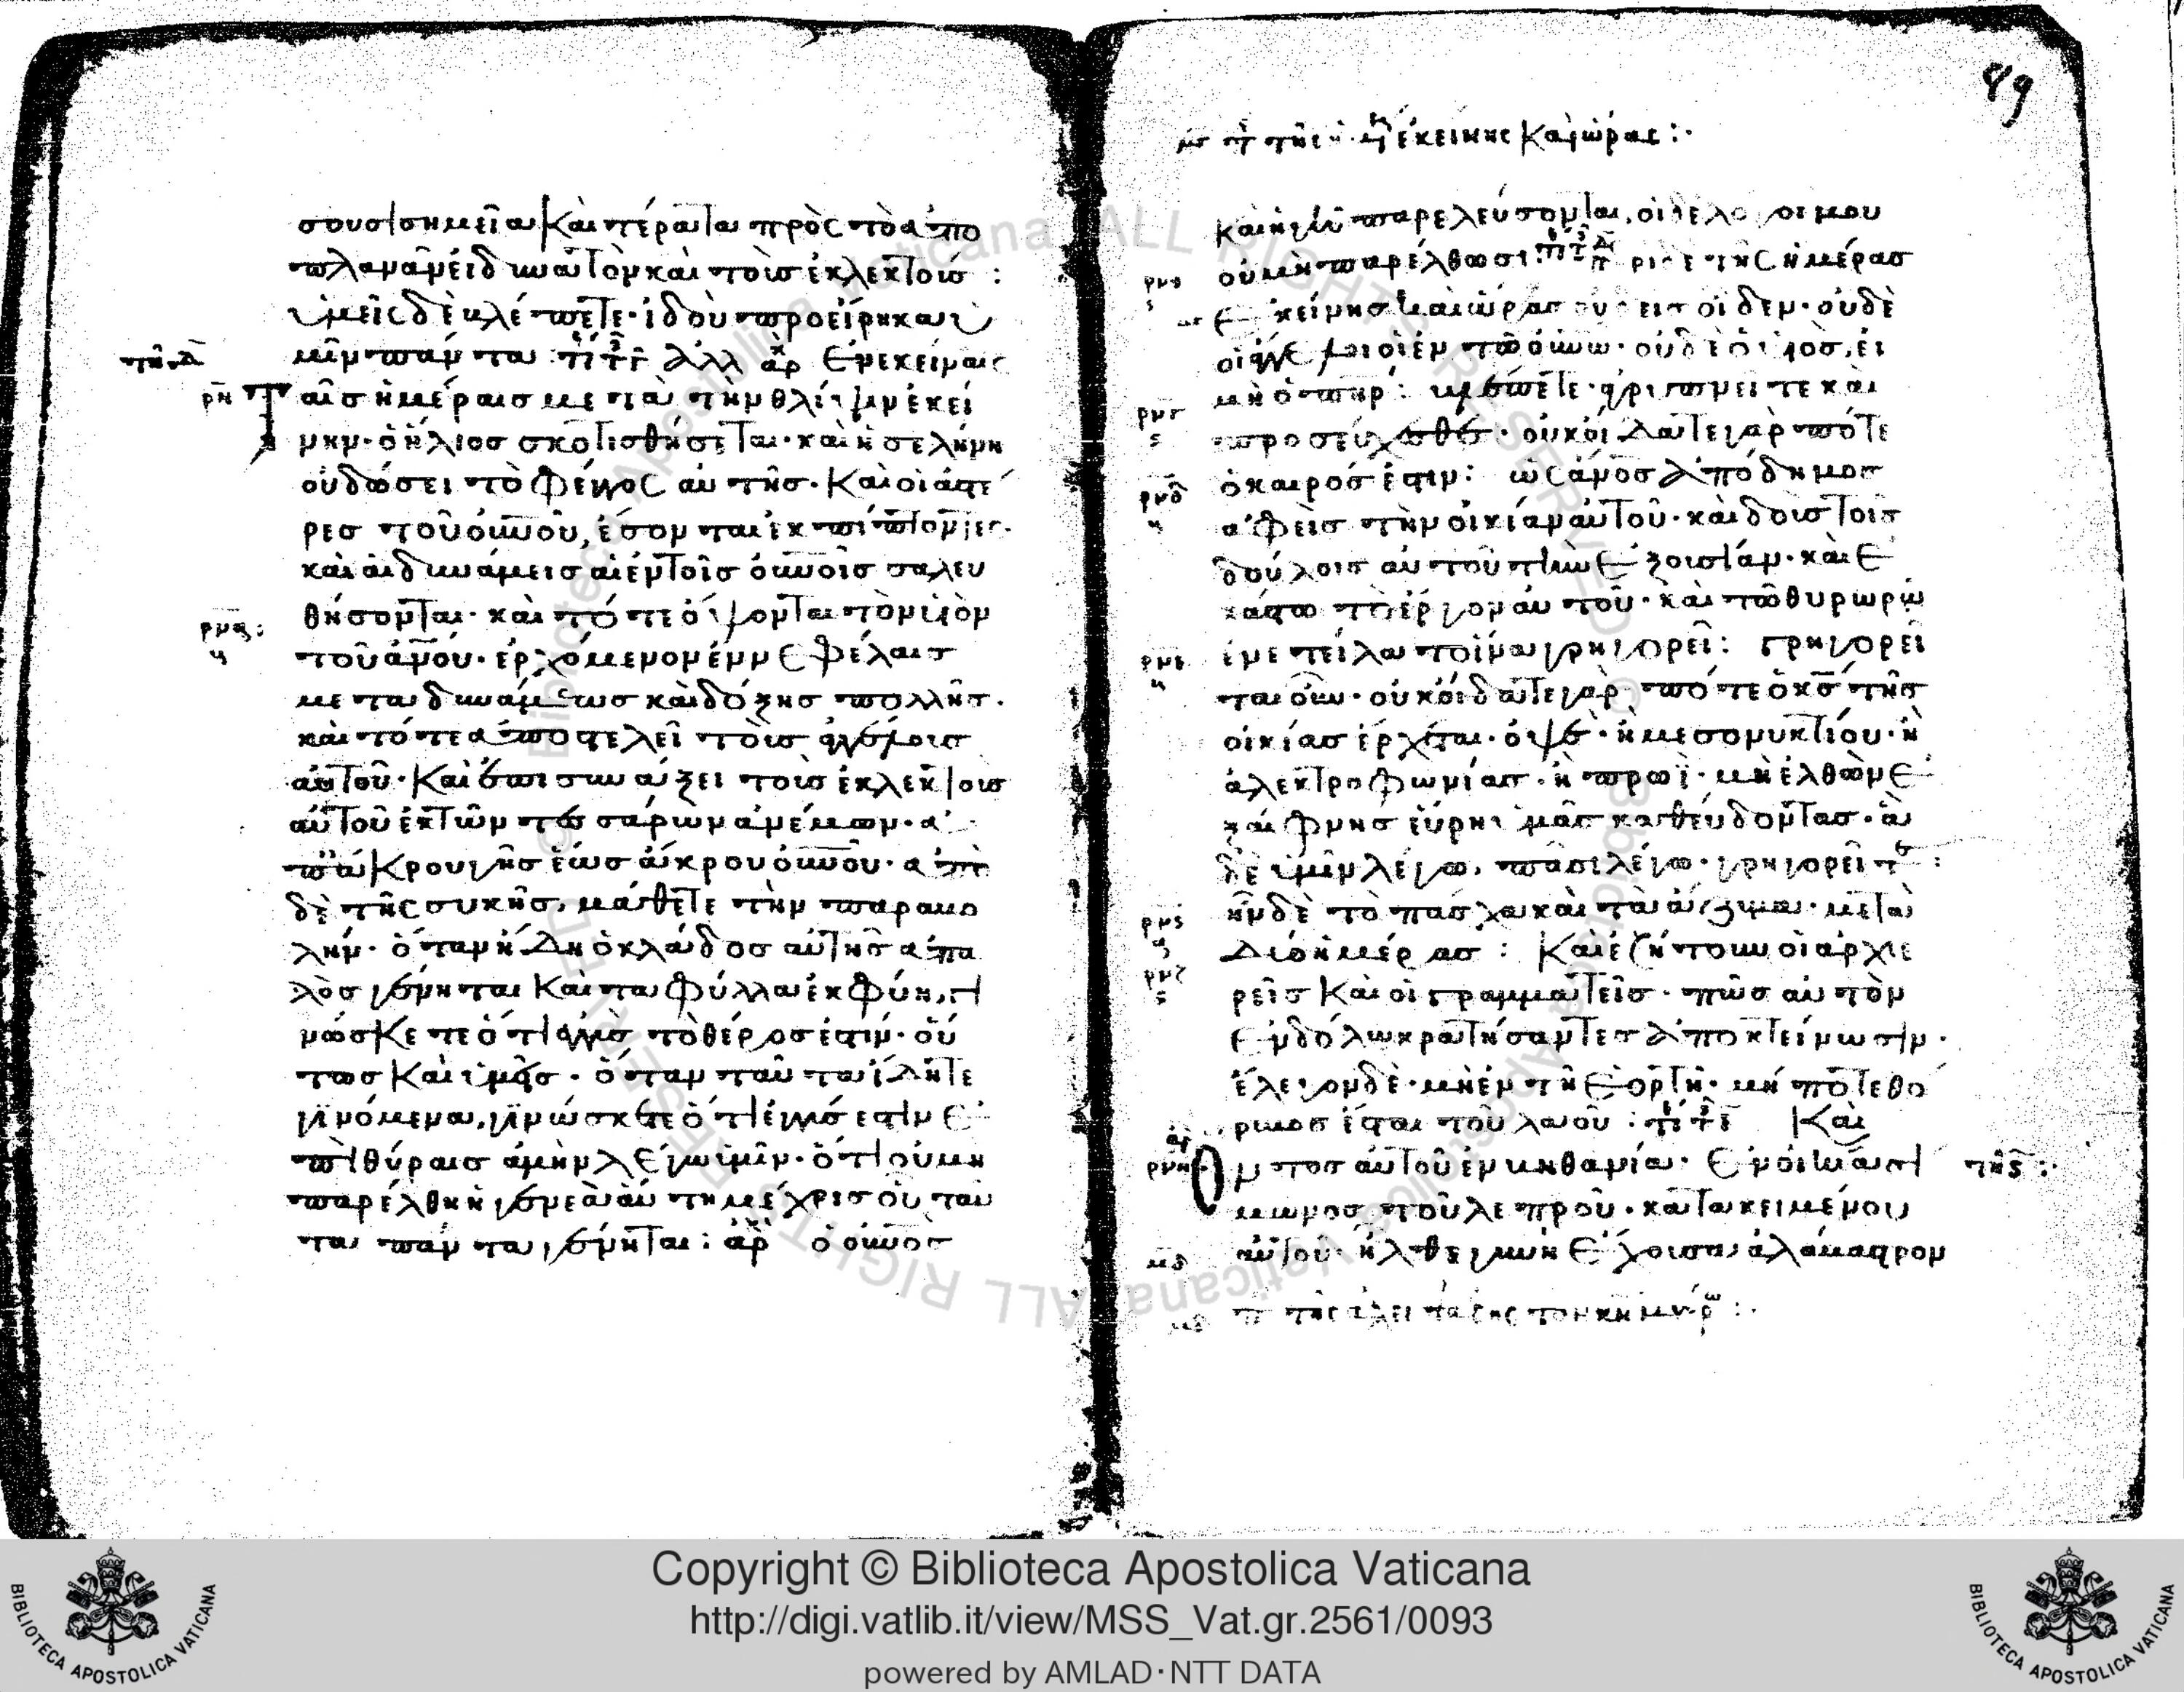 σουσι σημεῖα καὶ τέρατα πρὸς τὸ ἀπο
πλανᾶν εἰ δυνατὸν καὶ τοὺσ ἐκλεκτούσ :
ὑμεῖς δὲ βλέπετε· ἰδοὺ προείρηκα ὑ
μῖν πάντα : ἀρχ Ἐν ἐκείναις
ρν ταῖσ ἡμέραισ μετὰ τὴν θλίψιν ἐκεί
νην· ὁ ἥλιοσ σκοτισθήσεται· καὶ ἡ σελήνη
οὐ δώσει τὸ φέγγος αὐτῆσ· καὶ οἱ ἀστέ
ρεσ τοῦ οὐνοῦ, ἔσονται ἐκπίπτοντες·
καὶ αἱ δυνάμεισ αἱ ἐν τοῖσ οὐνοῖσ σαλευ
θήσονται· καὶ τότε ὄψονται τὸν υἱὸν
ρνα :
τοῦ ἀνου· ἐρχόμενον ἐν νεφέλαισ
μετὰ δυνάμεωσ καὶ δόξησ πολλῆσ·
καὶ τότε ἀποστελεῖ τοὺσ ἀγγέλουσ
αὐτοῦ· καὶ ἐπισυνάξει τοὺσ ἐκλεκτοὺσ
αὐτοῦ ἐκ τῶν τεσσάρων ἀνέμων· ἀ
π' ἄκρου γῆσ ἕωσ ἄκρου οὐνοῦ· ἀπὸ
δὲ τῆς συκῆσ, μάθετε τὴν παραβο
λήν· ὅταν ἤδη ὁ κλάδοσ αὐτῆσ ἁπα
λὸσ γένηται καὶ τὰ φύλλα ἐκφύη, γι
νώσκετε ὅτι ἐγγὺσ τὸ θέροσ ἐστίν· οὕ
τωσ καὶ ὑμεῖσ· ὅταν ταῦτα ἴδητε
γινόμενα, γινώσκετε ὅτι ἐγγύσ ἐστιν ἐ
πὶ θύραισ ἀμὴν λέγω ὑμῖν· ὅτι οὐ μὴ
παρέλθη ἡ γενεὰ αὕτη μέχρισ οὗ ταῦ
τα πάντα γένηται : ἀρ ὁ οὐνὸσ
49
ἐκείνης καὶ ὥρας :·
καὶ ἡ γῆ παρελεύσονται, οἱ δὲ λόγοι μου
οὐ μὴ παρέλθωσι : περὶ δὲ τῆς ἡμέρασ
ρνβ
ἐκείνησ καὶ ὥρασ οὐδεὶσ οἶδεν· οὐδὲ
οἱ ἄγγελοι οἱ ἐν τῶ οὐνω· οὐδὲ ὁ υἱόσ, εἰ
μὴ ὁ πηρ : βλέπετε· ἀγρυπνεῖτε καὶ
ρνγ
προσεύχεσθε· οὐκ οἴδατε γὰρ πότε
ὁ καιρόσ ἐστιν : ὡς ἀνοσ ἀπόδημοσ
ρνδ
ἀφεὶσ τὴν οἰκίαν αὐτοῦ· καὶ δοὺσ τοῖσ
δούλοισ αὐτοῦ τὴν ἐξουσίαν· καὶ ἑ
κάστω τὸ ἔργον αὐτοῦ· καὶ τῶ θυρωρῶ
ἐνετείλατο ἵνα γρηγορεῖ : γρηγορεῖ
ρνε
ται οὖν· οὐκ οἴδατε γὰρ πότε ὁ κσ τῆσ
οἰκίασ ἔρχεται· ὀψὲ· ἢ μεσονυκτίου· ἢ
ἀλεκτροφωνίασ· ἢ πρωῒ· μὴ ἐλθὼν ἐ
ξαίφνησ εὕρη ὑμᾶσ καθεύδοντασ· ἃ
δὲ ὑμῖν λέγω, πᾶσι λέγω· γρηγορεῖτε :
ἦν δὲ τὸ πάσχα καὶ τὰ ἄζυμα· μετὰ
ρνς
δύο ἡμέρασ : καὶ ἐζήτουν οἱ ἀρχιε
ρνζ
ρεῖσ καὶ οἱ γραμματεῖσ· πῶσ αὐτὸν
ἐν δόλω κρατήσαντεσ ἀποκτείνωσιν·
ἔλεγον δὲ· μὴ ἐν τῆ ἑορτῆ· μή ποτε θό
ρυβοσ ἔσται τοῦ λαοῦ : καὶ
ρνη ὄντοσ αὐτοῦ ἐν βηθανία· ἐν οἰκία σι
μωνοσ τοῦ λεπροῦ· κατακειμένου
αὐτοῦ· ἦλθε γυνὴ ἔχουσα ἀλάβαστρον
μδ
Copyright © Biblioteca Apostolica Vaticana
http://digi.vatlib.it/view/MSS_Vat.gr.2561/0093
powered by AMLAD·NTT DATA
BIBLIOTECA APOSTOLICA VATICANA
BIBLIOTECA APOSTOLICA VATICANA